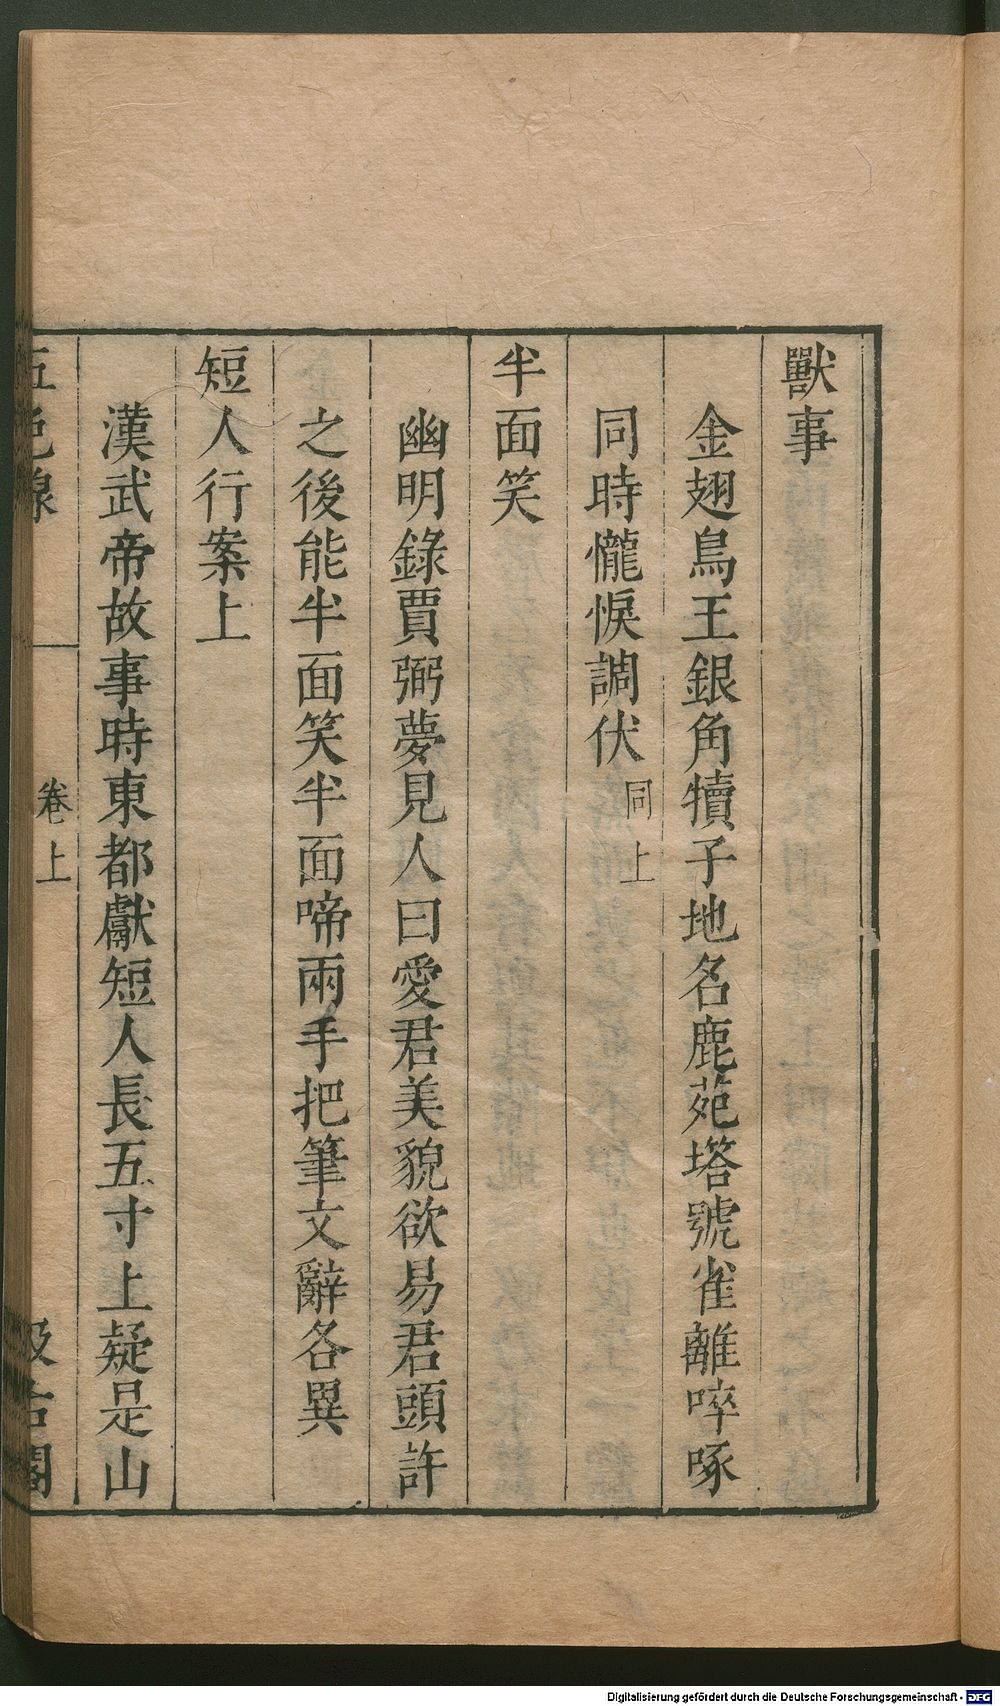 獸事
金翅鳥王銀角犢子地名鹿苑塔號雀離啐啄
同時儱悷調伏同上
半面笑
幽明錄賈弼夢見人曰愛君美貌欲易君頭許
之後能半面笑半面啼兩手把筆文辭各異
短人行案上
漢武帝故事時東都獻短人長五寸上疑是山
五色線
卷上
汲古閣
Digitalisierung gefördert durch die Deutsche Forschungsgemeinschaft - DFG